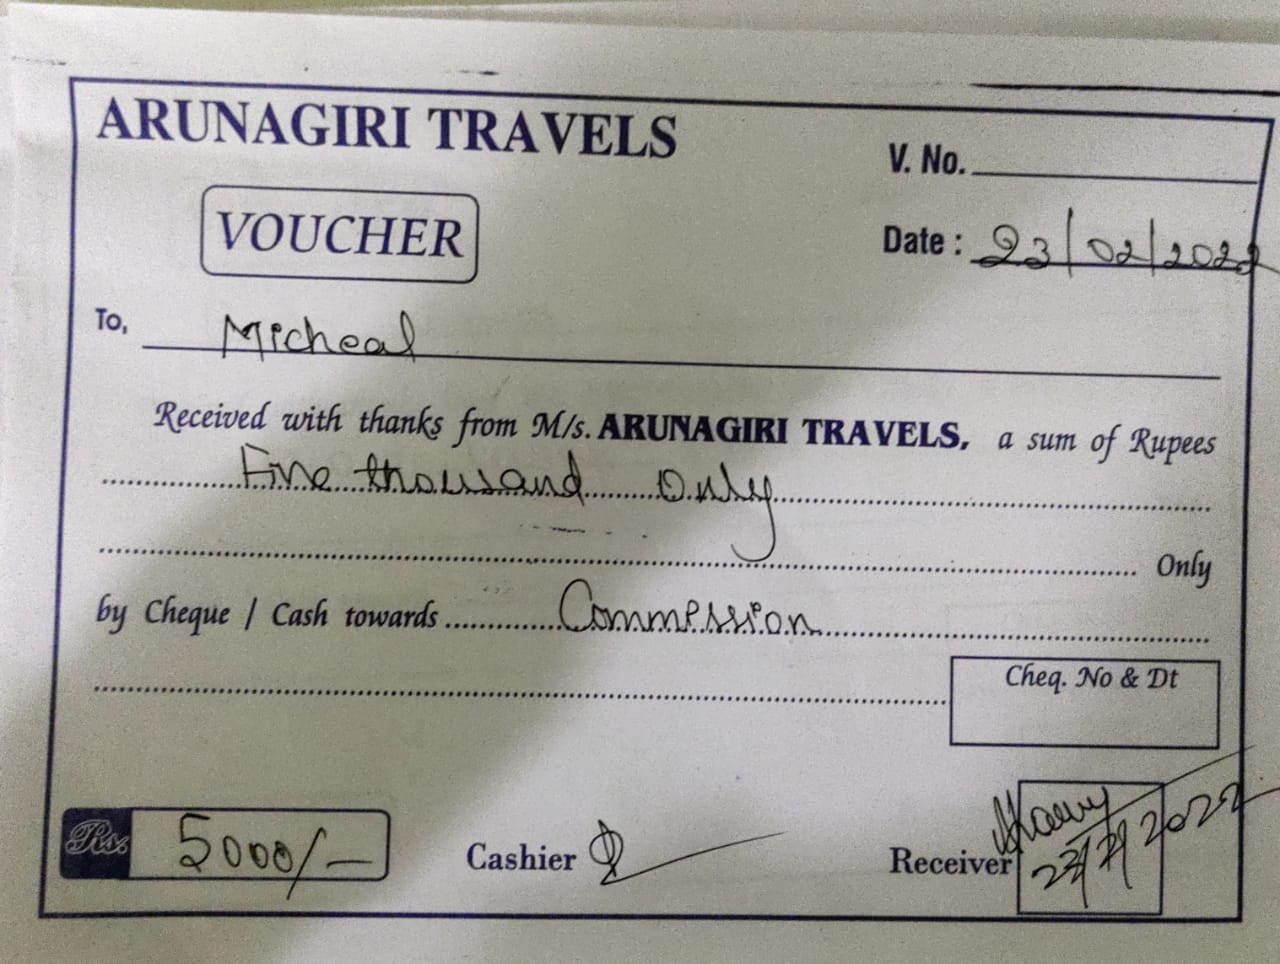 ARUNAGIRI TRAVELS
V. No.
VOUCHER
Date : 23/02/2022
To, Micheal
Received with thanks from M/s. ARUNAGIRI TRAVELS, a sum of Rupees
Five thousand Only
Only
by Cheque / Cash towards Commission
Cheq. No & Dt
Rs. 5000/-
Cashier
Receiver
23/2/2022